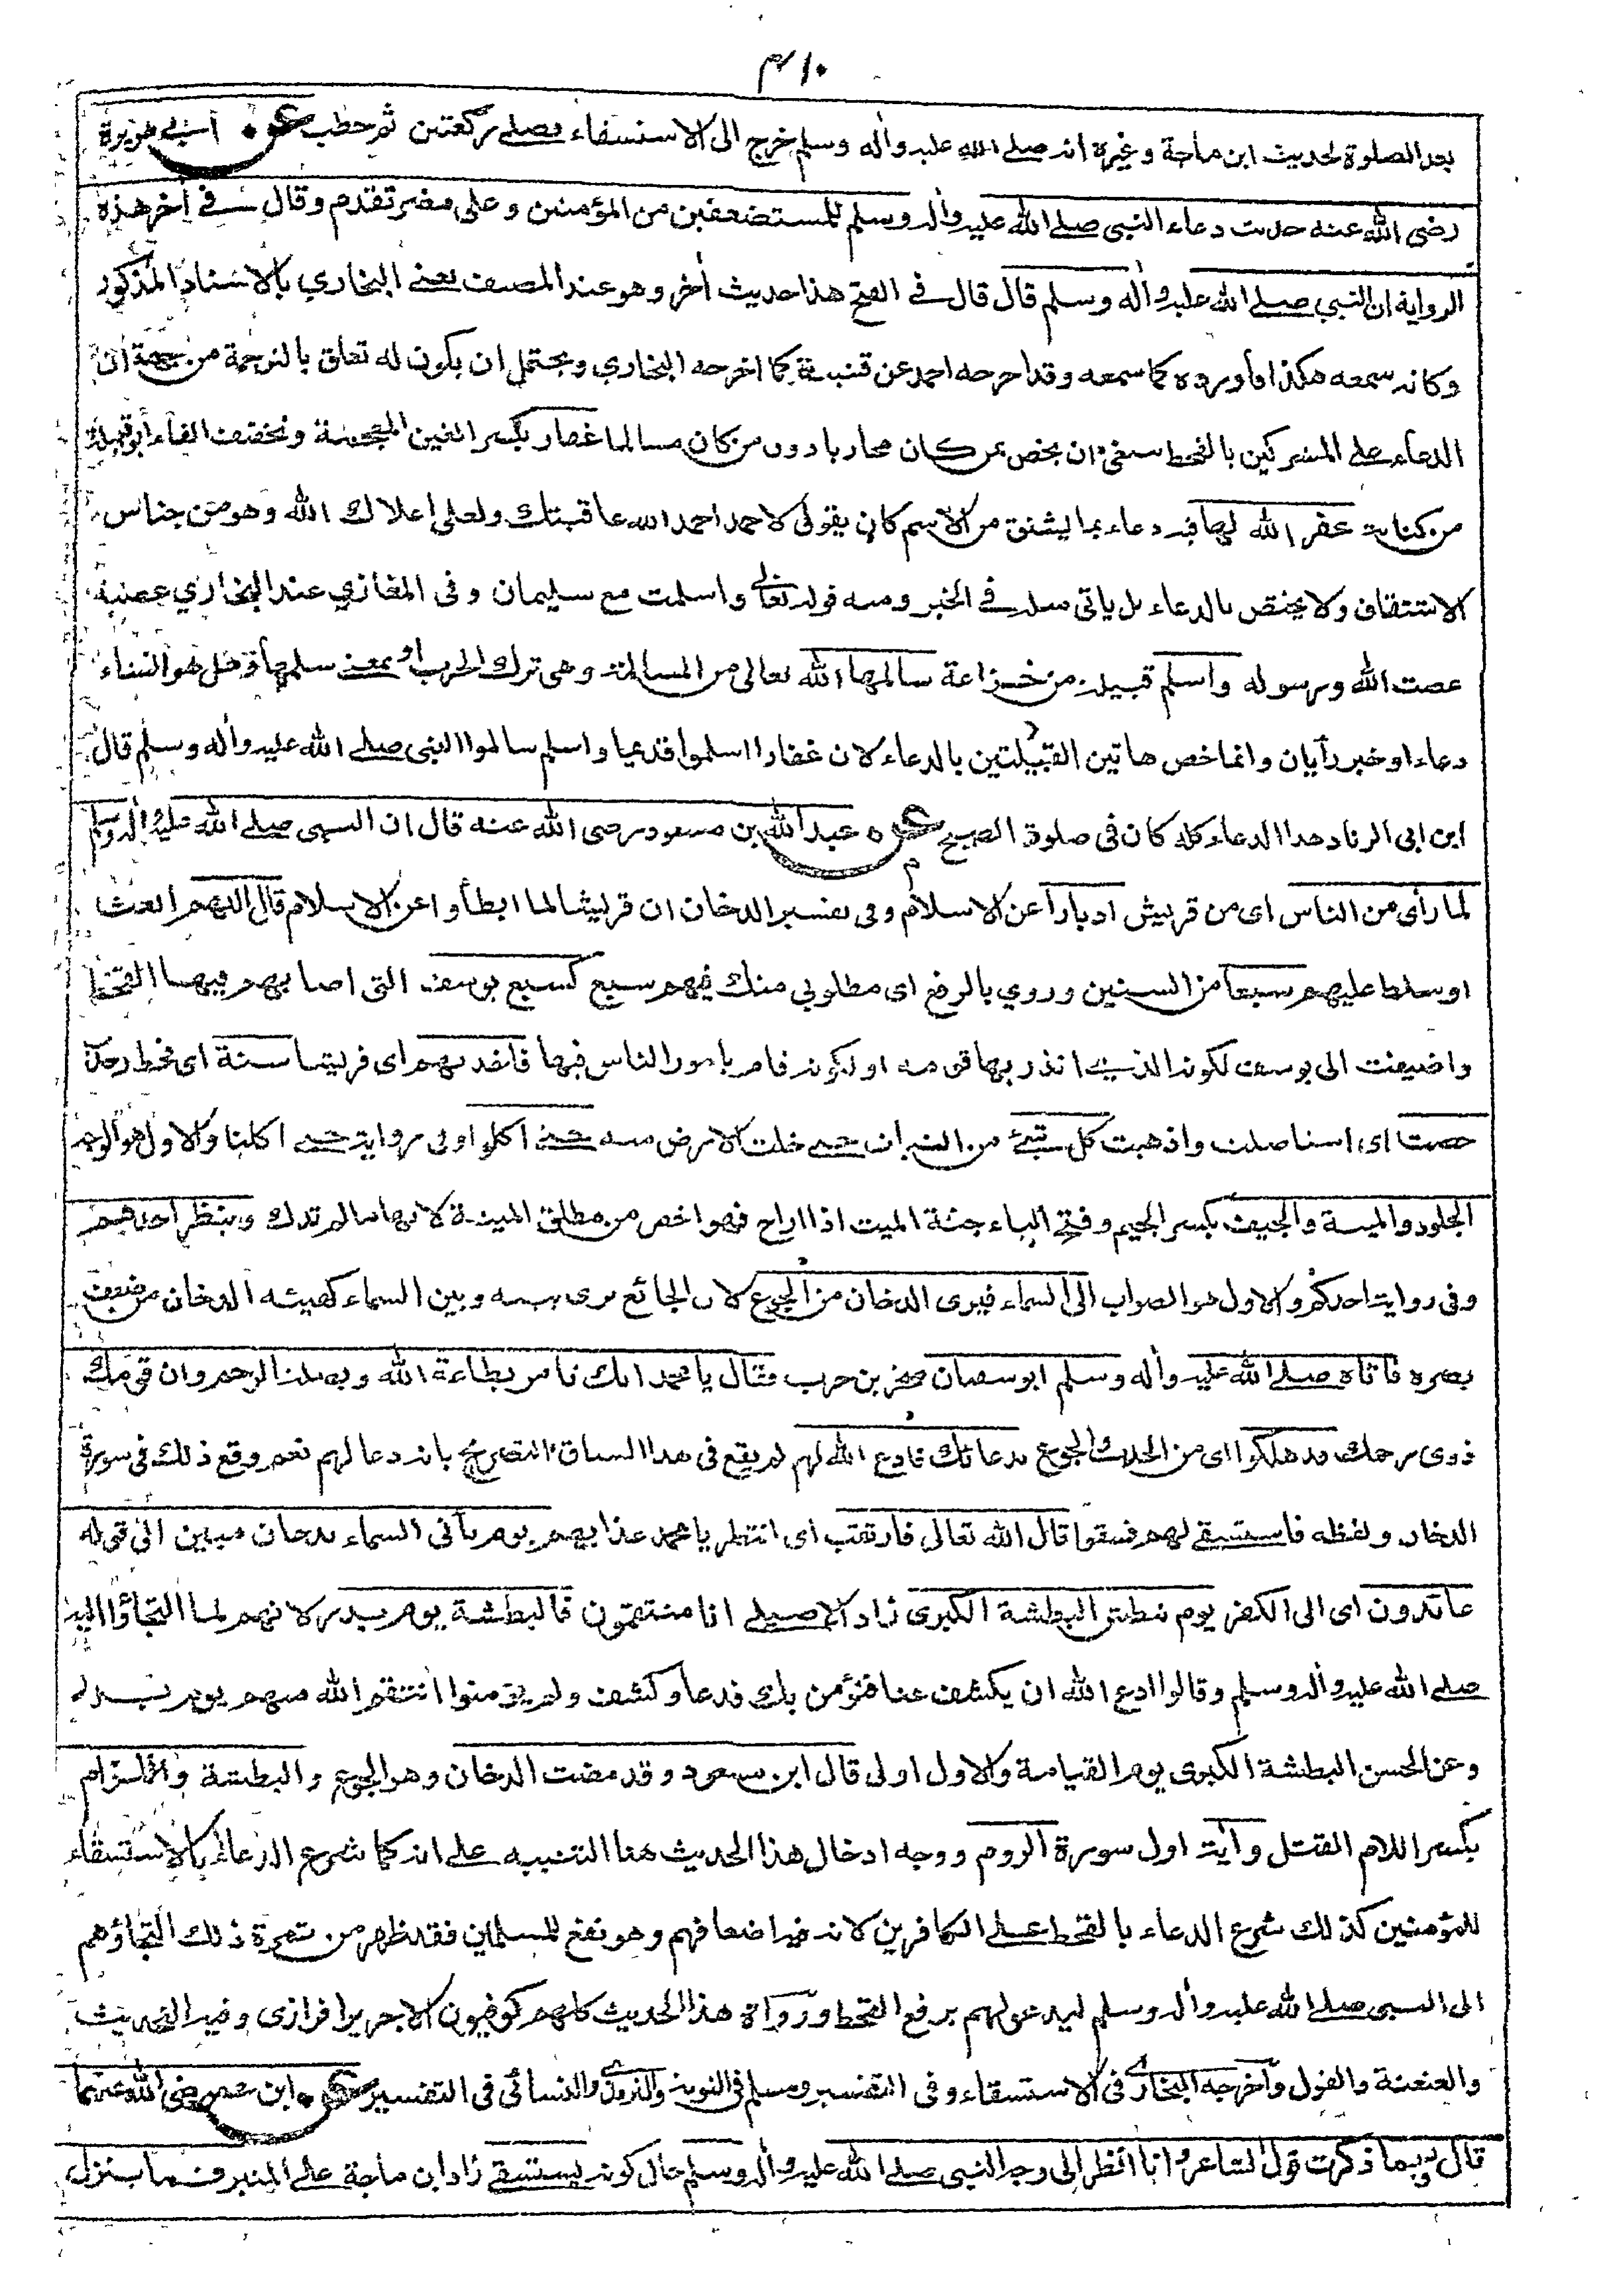 ٣١٠
بعد الصلوة لحديث ابن ماجة وغيره انه صلى الله عليه وأله وسلم خرج الى الاستسقاء فصلى ركعتين ثم خطب عن ابي هريرة
رضى الله عنه حديث دعاء النبى صلى الله عليه وأله وسلم للمستضعفين من المؤمنين وعلى مضر تقدم وقال فى أخر هذه
الرواية ان النبي صلى الله عليه وأله وسلم قال قال فى الفتح هذا حديث أخر وهو عند المصنف يعنى البخاري بالاسناد المذكور
وكانه سمعه هكذا فأورده كما سمعه وقد اخرجه احمد عن قتيبة كما اخرجه البخاري ويحتمل ان يكون له تعلق بالترجمة من جهة ان
الدعاء على المشركين بالقحط ينبغى ان يخص بمن كان محاربا دون من كان مسالما غفار بكسر الغين المعجمة وتخفيف الفاء أبو قبيلة
من كنانة غفر الله لها فيه دعاء بما يشتق من الاسم كان يقول لاحمد احمد الله عاقبتك ولعلى اعلاك الله وهو من جناس
الاشتقاق ولا يختص بالدعاء بل ياتى مثله فى الخبر ومنه قوله تعالى واسلمت مع سليمان وفى المغازي عند البخاري عصية
عصت الله ورسوله واسلم قبيلة من خزاعة سالمها الله تعالى من المسالمة وهى ترك الحرب او بمعنى سلمها وهل هو انشاء
دعاء او خبر رأيان وانما خص هاتين القبيلتين بالدعاء لان غفارا اسلموا قديما واسلم سالموا النبى صلى الله عليه وأله وسلم قال
ابن ابى الزناد هذا الدعاء كله كان فى صلوة الصبح عن عبد الله بن مسعود رضى الله عنه قال ان النبى صلى الله عليه وأله وسلم
لما رأى من الناس اى من قريش ادبارا عن الاسلام وفى تفسير الدخان ان قريشا لما ابطأوا عن الاسلام قال اللهم ابعث
او سلط عليهم سبعا من السنين وروي بالرفع اى مطلوبي منك فيهم سبع كسبع يوسف التى اصابهم فيها القحط
واضيفت الى يوسف لكونه الذى انذر بها قومه او لكونه قام بامور الناس فيها فاخذتهم اى قريشا سنة اى قحط وجدب
حصت اى استاصلت واذهبت كل شئ من النبات حتى خلت الارض منه حتى اكلوا وفى رواية حتى اكلنا والاول هو الوجه
الجلود والميتة والجيف بكسر الجيم وفتح الياء جثة الميت اذا اراح فهو اخص من مطلق الميتة لانها ما لم تذك وينظر احدهم
وفى رواية احدكم والاول هو الصواب الى السماء فيرى الدخان من الجوع لان الجائع يرى بينه وبين السماء كهيئة الدخان من ضعف
بصره فاتاه صلى الله عليه وأله وسلم ابو سفيان صخر بن حرب فقال يا محمد انك تامر بطاعة الله وبصلة الرحم وان قومك
ذوى رحمك قد هلكوا اى من الجدب والجوع بدعائك فادع الله لهم لم يقع فى هذا السياق التصريح بانه دعا لهم نعم وقع ذلك فى سورة
الدخان ولفظه فاستسقى لهم فسقوا قال الله تعالى فارتقب اى انتظر يا محمد عذابهم يوم تأتى السماء بدخان مبين الى قوله
عائدون اى الى الكفر يوم نبطش البطشة الكبرى زاد الاصيلى انا منتقمون فالبطشة يوم بدر لانهم لما التجأوا اليه
صلى الله عليه وأله وسلم وقالوا ادع الله ان يكشف عنا فنؤمن بك فدعا وكشف ولم يؤمنوا انتقم الله منهم يوم بدر
وعن الحسن البطشة الكبرى يوم القيامة والاول اولى قال ابن مسعود وقد مضت الدخان وهو الجوع والبطشة واللزام
بكسر اللام القتل وأية اول سورة الروم ووجه ادخال هذا الحديث هنا التنبيه على انه كما شرع الدعاء بالاستسقاء
للمؤمنين كذلك شرع الدعاء بالقحط على الكافرين لانه فيه اضعافهم وهو نفع للمسلمين فقد ظهر من ثمرة ذلك التجاؤهم
الى النبى صلى الله عليه وأله وسلم ليدعو لهم برفع القحط ورواة هذا الحديث كلهم كوفيون الا جريرا فرازى وفيه التحديث
والعنعنة والقول وأخرجه البخاري فى الاستسقاء وفى التفسير ومسلم فى التوبة والترمذي والنسائى فى التفسير عن ابن عمر رضى الله عنهما
قال ربما ذكرت قول الشاعر وانا انظر الى وجه النبى صلى الله عليه وأله وسلم حال كونه يستسقى زاد ابن ماجة على المنبر فما ينزل